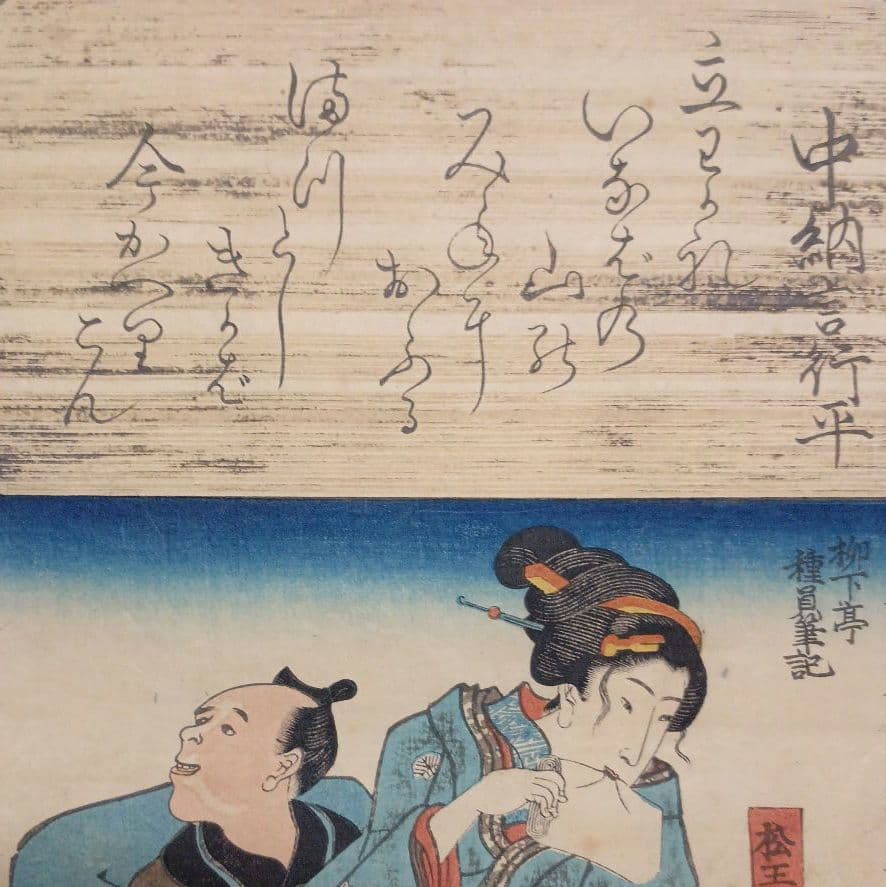 中納言行平
立わかれ
いなばの
山の
みねに
おふる
まつ
とし
きかば
今かへり
こん
柳下亭
種員筆記
松王